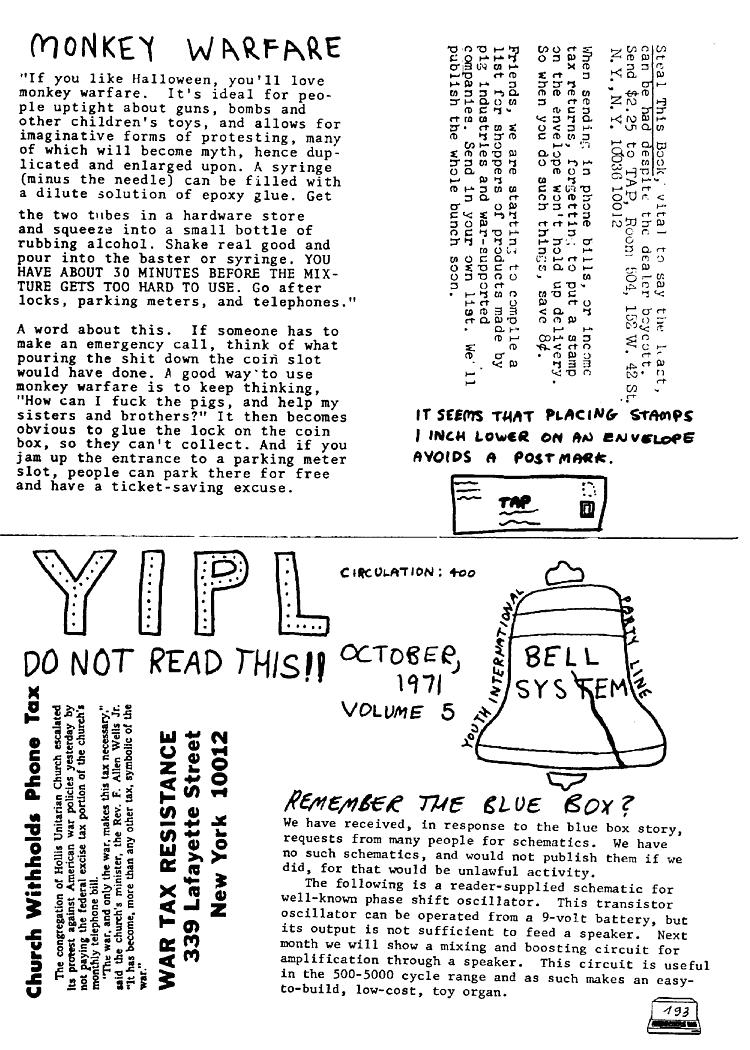 MONKEY WARFARE
"If you like Halloween, you'll love
monkey warfare. It's ideal for peo-
ple uptight about guns, bombs and
other children's toys, and allows for
imaginative forms of protesting, many
of which will become myth, hence dup-
licated and enlarged upon. A syringe
(minus the needle) can be filled with
a dilute solution of epoxy glue. Get
the two tubes in a hardware store
and squeeze into a small bottle of
rubbing alcohol. Shake real good and
pour into the baster or syringe. YOU
HAVE ABOUT 30 MINUTES BEFORE THE MIX-
TURE GETS TOO HARD TO USE. Go after
locks, parking meters, and telephones."
A word about this. If someone has to
make an emergency call, think of what
pouring the shit down the coin slot
would have done. A good way to use
monkey warfare is to keep thinking,
"How can I fuck the pigs, and help my
sisters and brothers?" It then becomes
obvious to glue the lock on the coin
box, so they can't collect. And if you
jam up the entrance to a parking meter
slot, people can park there for free
and have a ticket-saving excuse.
Steal This Book, vital to say the least,
can be had despite the dealer boycott.
Send $2.25 to TAP, Room 504, 152 W. 42 St,
N.Y., N.Y. 10036 10012
When sending in phone bills, or income
tax returns, forgetting to put a stamp
on the envelope won't hold up delivery.
So when you do such things, save 8¢.
Friends, we are starting to compile a
list for shoppers of products made by
pig industries and war-supported
companies. Send in your own list. We'll
publish the whole bunch soon.
IT SEEMS THAT PLACING STAMPS
1 INCH LOWER ON AN ENVELOPE
AVOIDS A POSTMARK.
TAP
YIPL
CIRCULATION: 400
DO NOT READ THIS!!
OCTOBER,
1971
VOLUME 5
YOUTH INTERNATIONAL
PARTY LINE
BELL
SYSTEM
Church Withholds Phone Tax
The congregation of Hollis Unitarian Church escalated
its protest against American war policies yesterday by
not paying the federal excise tax portion of the church's
monthly telephone bill.
"The war, and only the war, makes this tax necessary,"
said the church's minister, the Rev. F. Allen Wells Jr.
"It has become, more than any other tax, symbolic of the
war."
WAR TAX RESISTANCE
339 Lafayette Street
New York 10012
REMEMBER THE BLUE BOX?
We have received, in response to the blue box story,
requests from many people for schematics. We have
no such schematics, and would not publish them if we
did, for that would be unlawful activity.
The following is a reader-supplied schematic for
well-known phase shift oscillator. This transistor
oscillator can be operated from a 9-volt battery, but
its output is not sufficient to feed a speaker. Next
month we will show a mixing and boosting circuit for
amplification through a speaker. This circuit is useful
in the 500-5000 cycle range and as such makes an easy-
to-build, low-cost, toy organ.
193